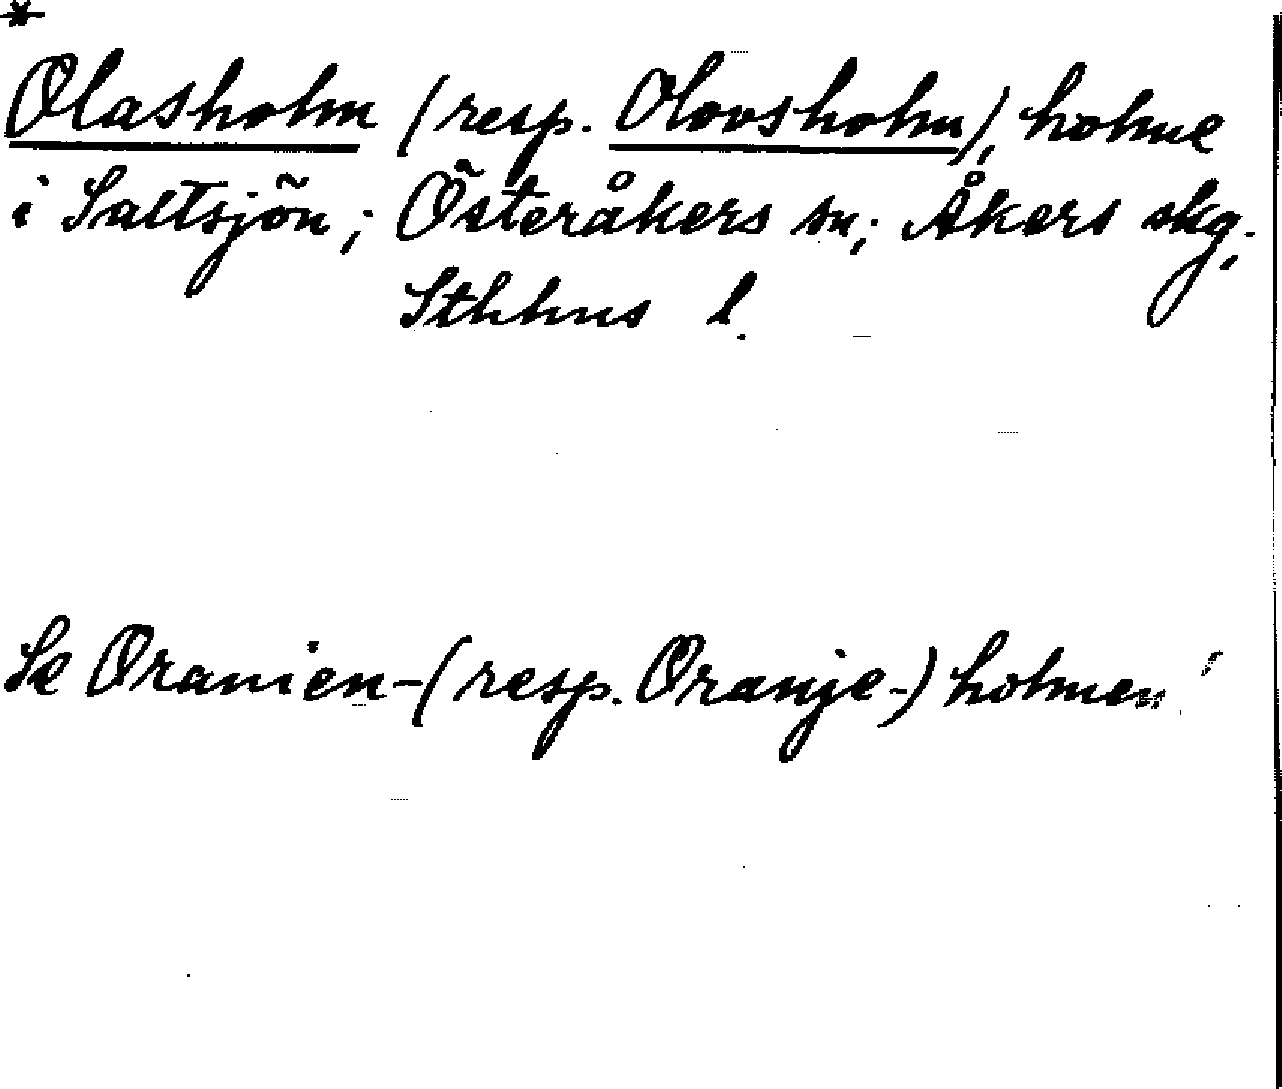 *
Olasholm (resp. Olovsholm), holme
i Saltsjön; Österåkers sn; Åkers skg.
Sthlms l.
Se Oranien-(resp. Oranje-) holmen